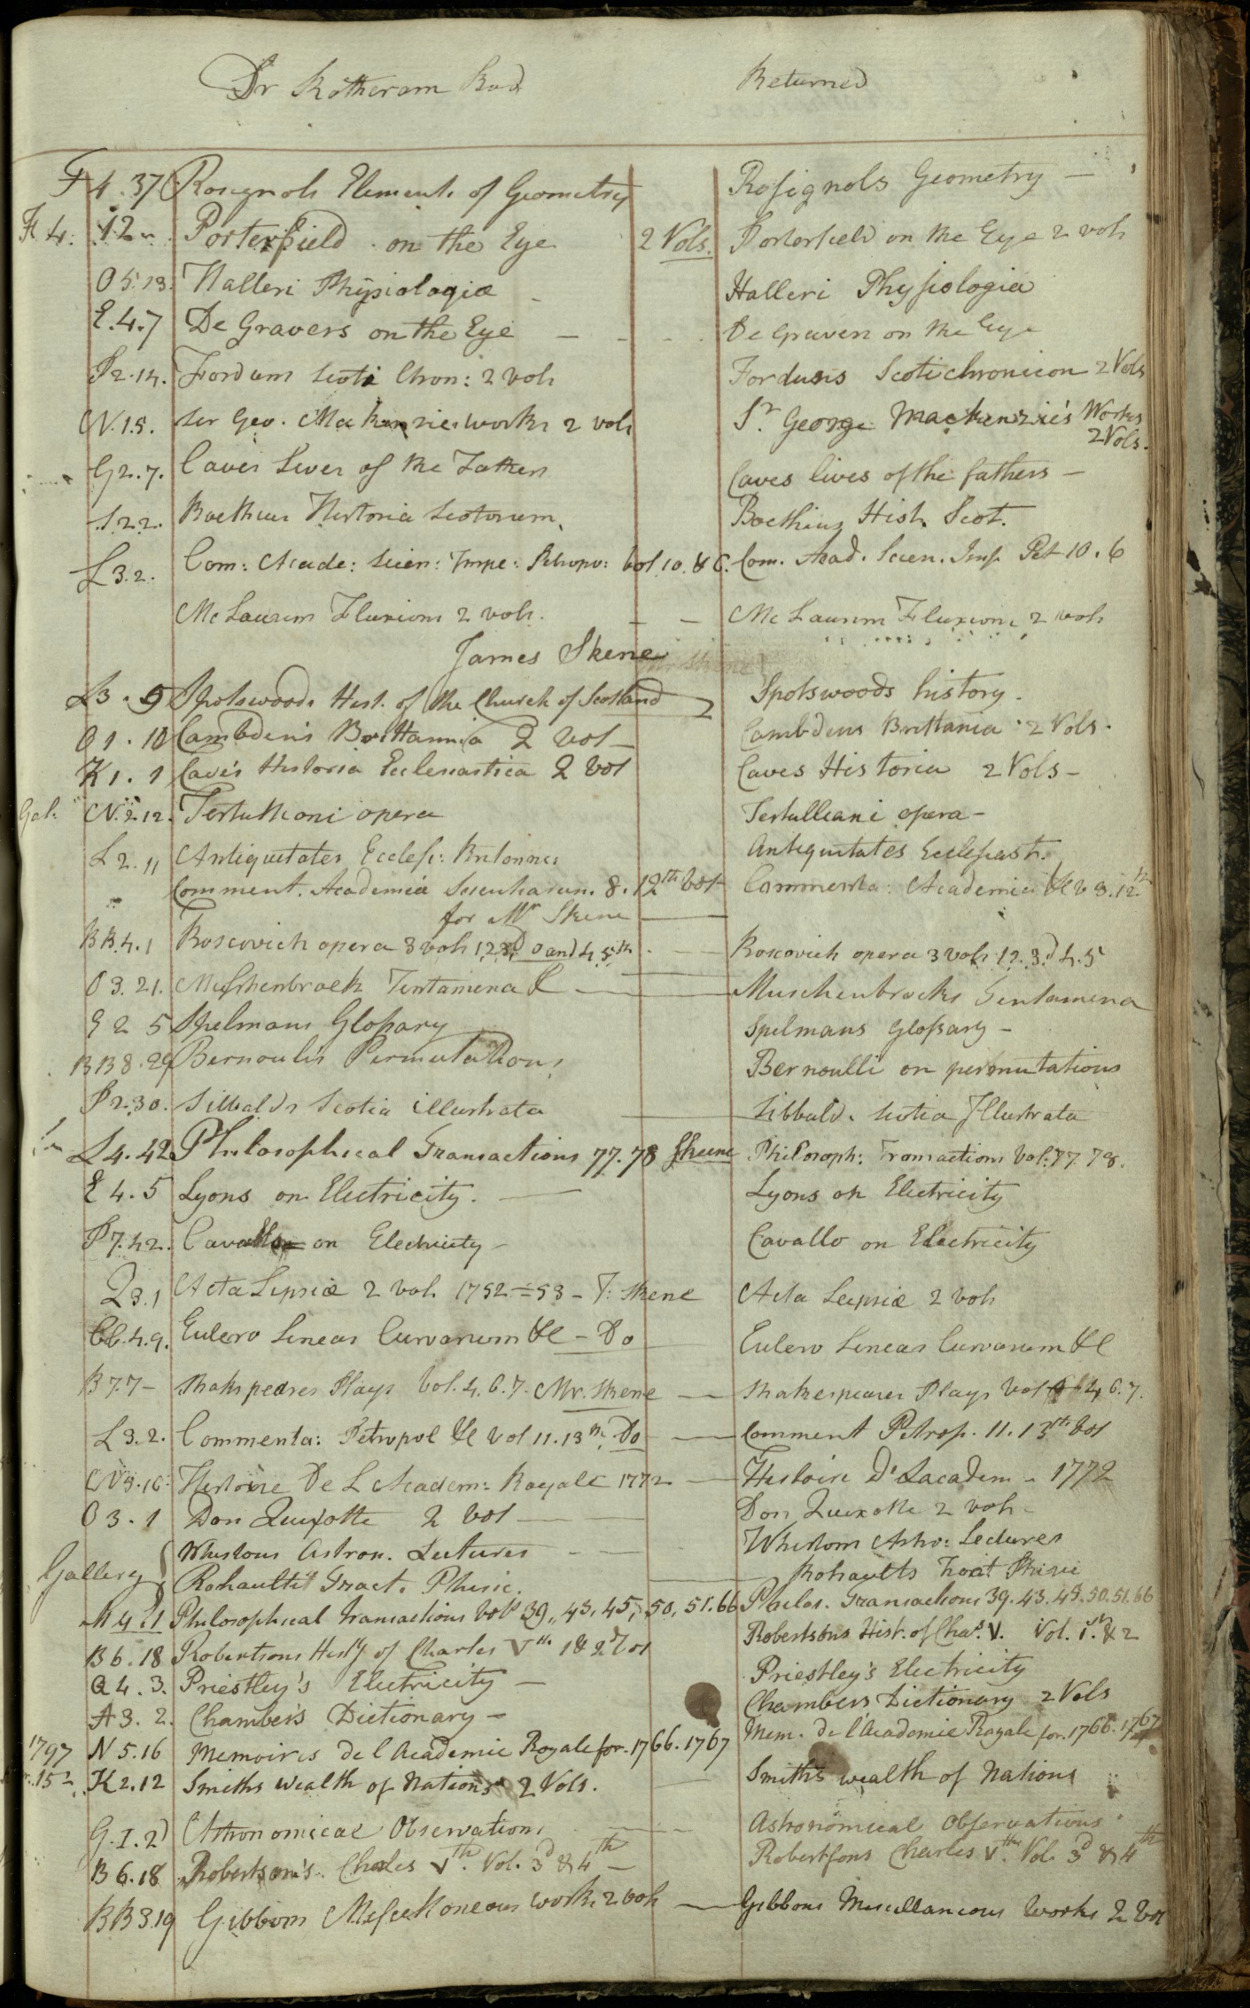 Dr Rotheram Recd Returned
F 4. 37 Rosignols Elements of Geometry Rosignols Geometry —
F 4. 12 Porterfield on the Eye 2 Vols. Porterfield on the Eye 2 vols
O 5.13. Halleri Physiologia Halleri Physiologia
E.4.7 De Gravers on the Eye — De Gravers on the Eye
P 2.14. Fordum Scoti Chron: 2 vols Forduns Scotichronicon 2 Vols
N.1.5. Ser Geo. Mackenzies works 2 vols Sr. George Mackenzie's Works
2 Vols.
G 2.7. Caves Lives of the Fathers Caves lives of the fathers —
S 2 2. Boethius Historia Scotorum, Boethius Hist. Scot.
L 3.2. Com: Acade: Scien: Impe: Petropo: Vol 10. & 6. Com. Acad. Scien. Imp. Pet 10. 6
Mc Laurin Fluxions 2 vols. — — Mc Laurin Fluxions 2 vols
James Skene
L3. 5 Spotswoods Hist. of the Church of Scotland Spotswoods history.
O 1. 10 Cambdens Brittannia 2 vol — Cambdens Brittania 2 Vols.
K 1. 1 Cave's Historia Ecclesiastica 2 Vol Caves Historia 2 Vols —
Gal. N.2.12. Tertulliani opera Tertulliani opera —
L 2. 11 Antiquitates Ecclesi: Britannic Antiquitates Ecclesiast.
Comment. Academia Scientiarum. 8. 12th Vol Commenta: Academia &c v 8. 12th
for Mr Skene
BB.4.1 Boscovich opera 3 vols 1, 2, 3d and 4, 5th — Boscovich opera 3 vols 1. 2. 3d 4. 5
O 3. 21. Muschenbroek Tentamena & — Muschenbrocks Tentamena
G 2 5 Spelmans Glossary Spelmans Glossary —
BB 8. 29 Bernoulis Permutations Bernoulli on permutations
P 2.30. Sibbalds Scotia illustrata Sibbalds Scotia Illustrata
L 4. 42 Philosophical Transactions 77. 78 Skene Philosoph: Transactions Vol: 77. 78.
E 4. 5 Lyons on Electricity. — Lyons on Electricity
P 7.42. Cavallo on Electricity — Cavallo on Electricity
Q 3.1 Acta Lipsiæ 2 vol. 1752 - 53 — J: Skene Acta Leipsiæ 2 vols
Cc.4.9. Eulero Lineas Curvarum &c — Do Eulero Lineas Curvarum &c
B 7.7 — Shakspeares Plays Vol. 4. 6. 7. Mr. Skene — Shakespeares Plays Vol 4 6. 7.
L 3. 2. Commenta: Petropol &c Vol 11. 13th. Do — Comment Petrop. 11. 13th Vol
N 3.16. Histoire De L Academ: Royale 1772 — Histoire D'Lacadem — 1772
O 3. 1 Don Quixotte 2 Vol — Don Quixotte 2 vols —
Whistons Astron. Lectures — Whistons Astro: Lectures
Gallery { Rohault's Tract. Phisic. Rohaults Tract Phisic
M 4 21 Philosophical Transactions Vols 39, 43, 45, 50, 51. 66 Philos. Transactions 39. 43. 45. 50. 51. 66
B 6. 18 Robertsons Histy of Charles Vth. 1 & 2d Vol Robertsons Hist. of Chas. V. Vol. 1st. & 2
Q 4. 3. Priestley's Electricity — Priestley's Electricity
A 3. 2. Chambers Dictionary — Chambers Dictionary 2 Vols
1797 N 5.16 Memoires de l Academie Royale for. 1766. 1767 Mem. de l'Academie Royale for. 1766. 1767
K 2.12 Smiths Wealth of Nations 2 Vols. Smith's wealth of Nations
G. I. 2 Astronomical Observations — Astronomical Observations
B 6.18 Robertson's Charles Vth. Vol. 3d & 4th — Robertsons Charles Vth. Vol. 3d & 4th
BB 3.19 Gibbons Miscellaneous works 2 vols — Gibbons Miscellaneous Works 2 Vol